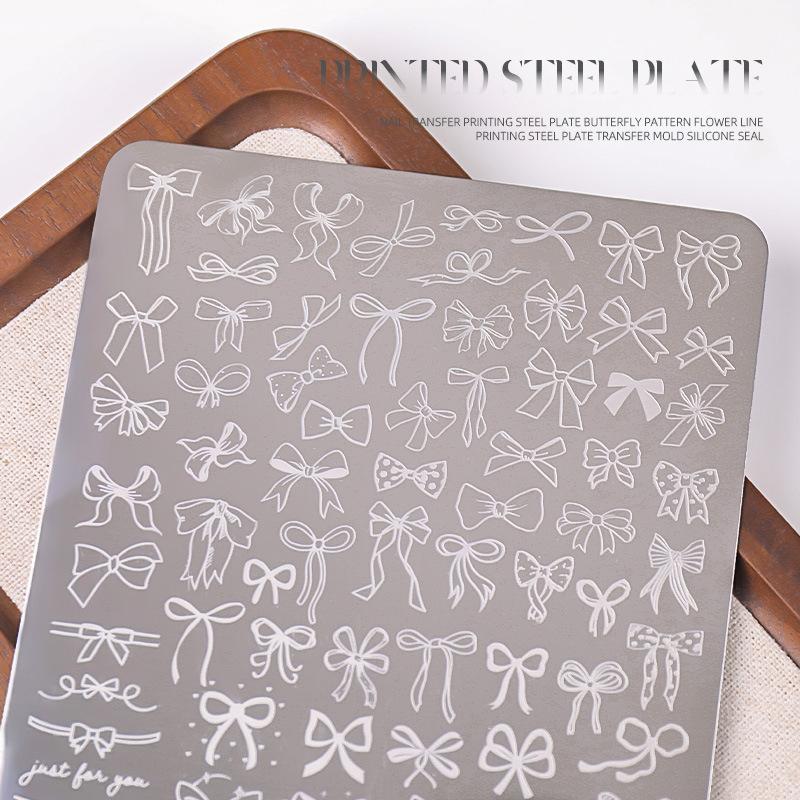 PRINTED STEEL PLATE
NAIL TRANSFER PRINTING STEEL PLATE BUTTERFLY PATTERN FLOWER LINE
PRINTING STEEL PLATE TRANSFER MOLD SILICONE SEAL
just for you